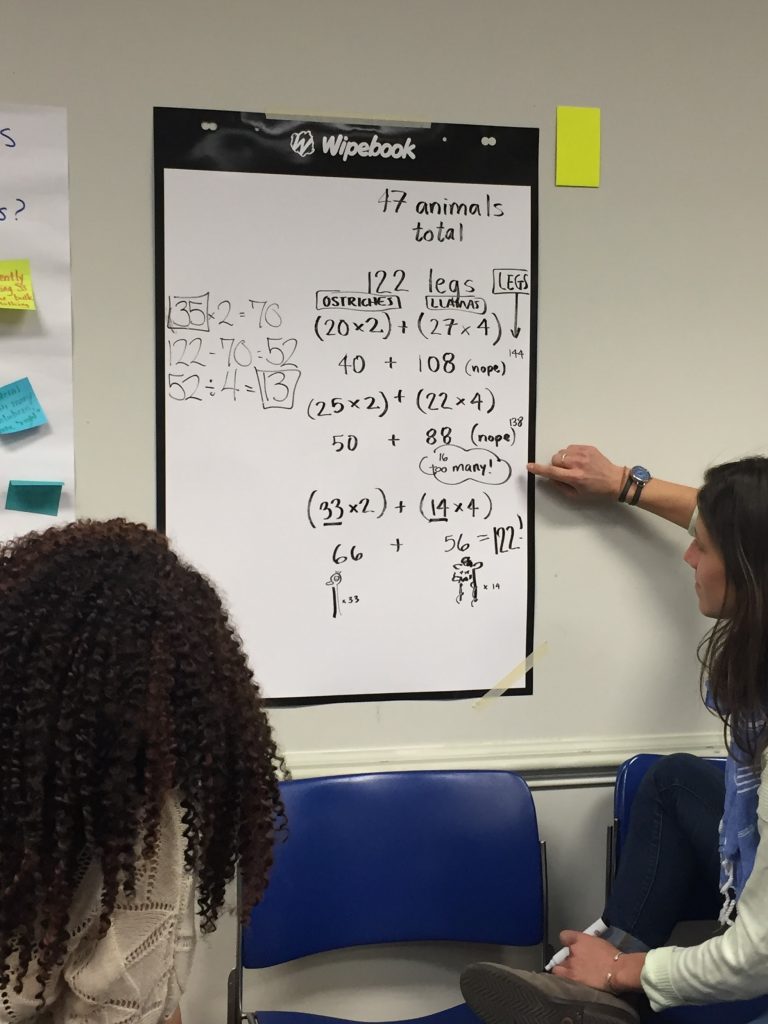 s
s?
ently
Wipebook
47 animals
total
122 legs
LEGS
OSTRICHES LLAMAS
(20×2) + (27×4)
40 + 108 (nope) 144
(25×2) + (22×4)
50 + 88 (nope) 138
16
too many!
(33×2) + (14×4)
66 + 56 = 122!
×33 ×14
35×2=70
122-70=52
52÷4=13